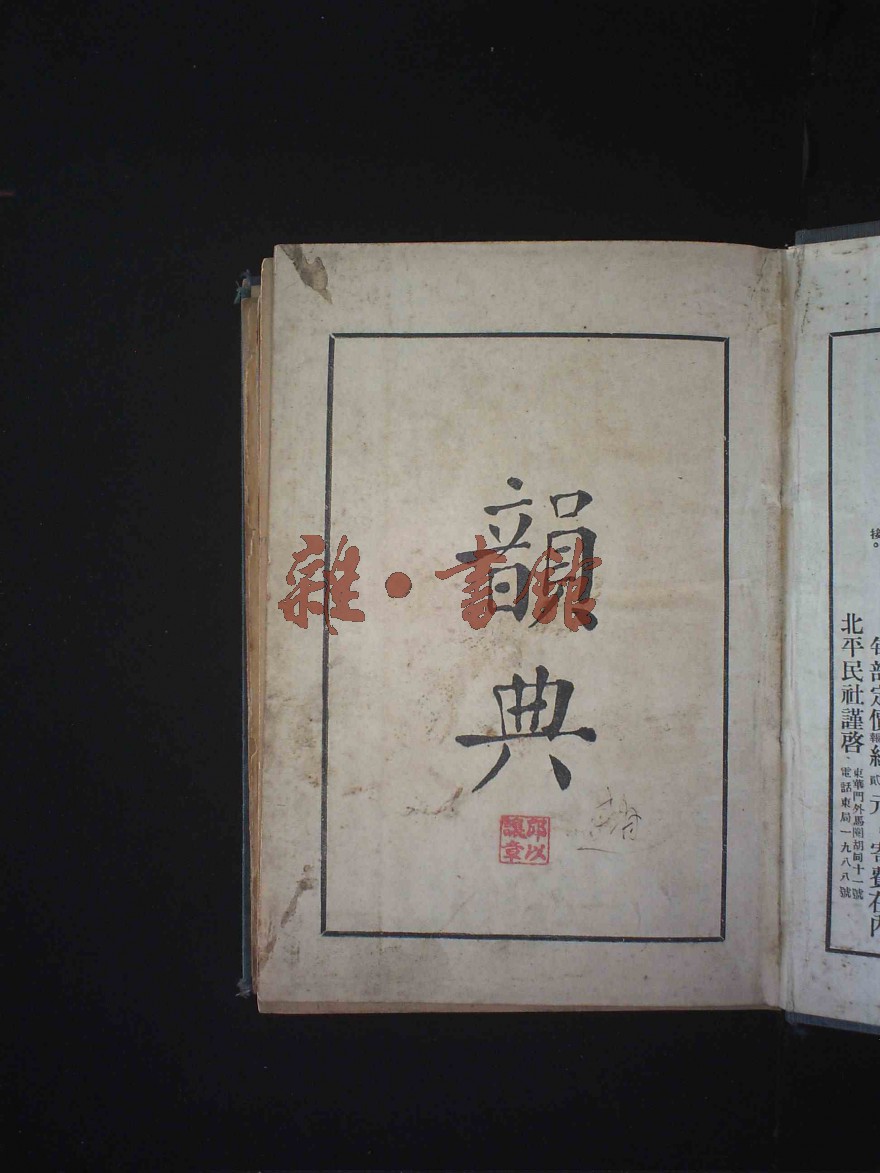 韻典
雜·書館
邱以
讓章
接。
每部定價報紙貳元寄費在內
北平民社謹啓、
東華門外馬圈胡同十一號
電話東局一九八八號